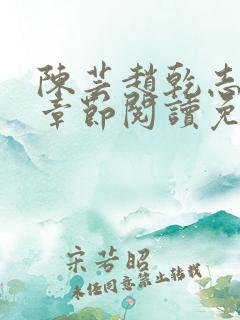 陳芸趙乾志
章節閱讀免
宋芳昭
未經同意禁止轉載